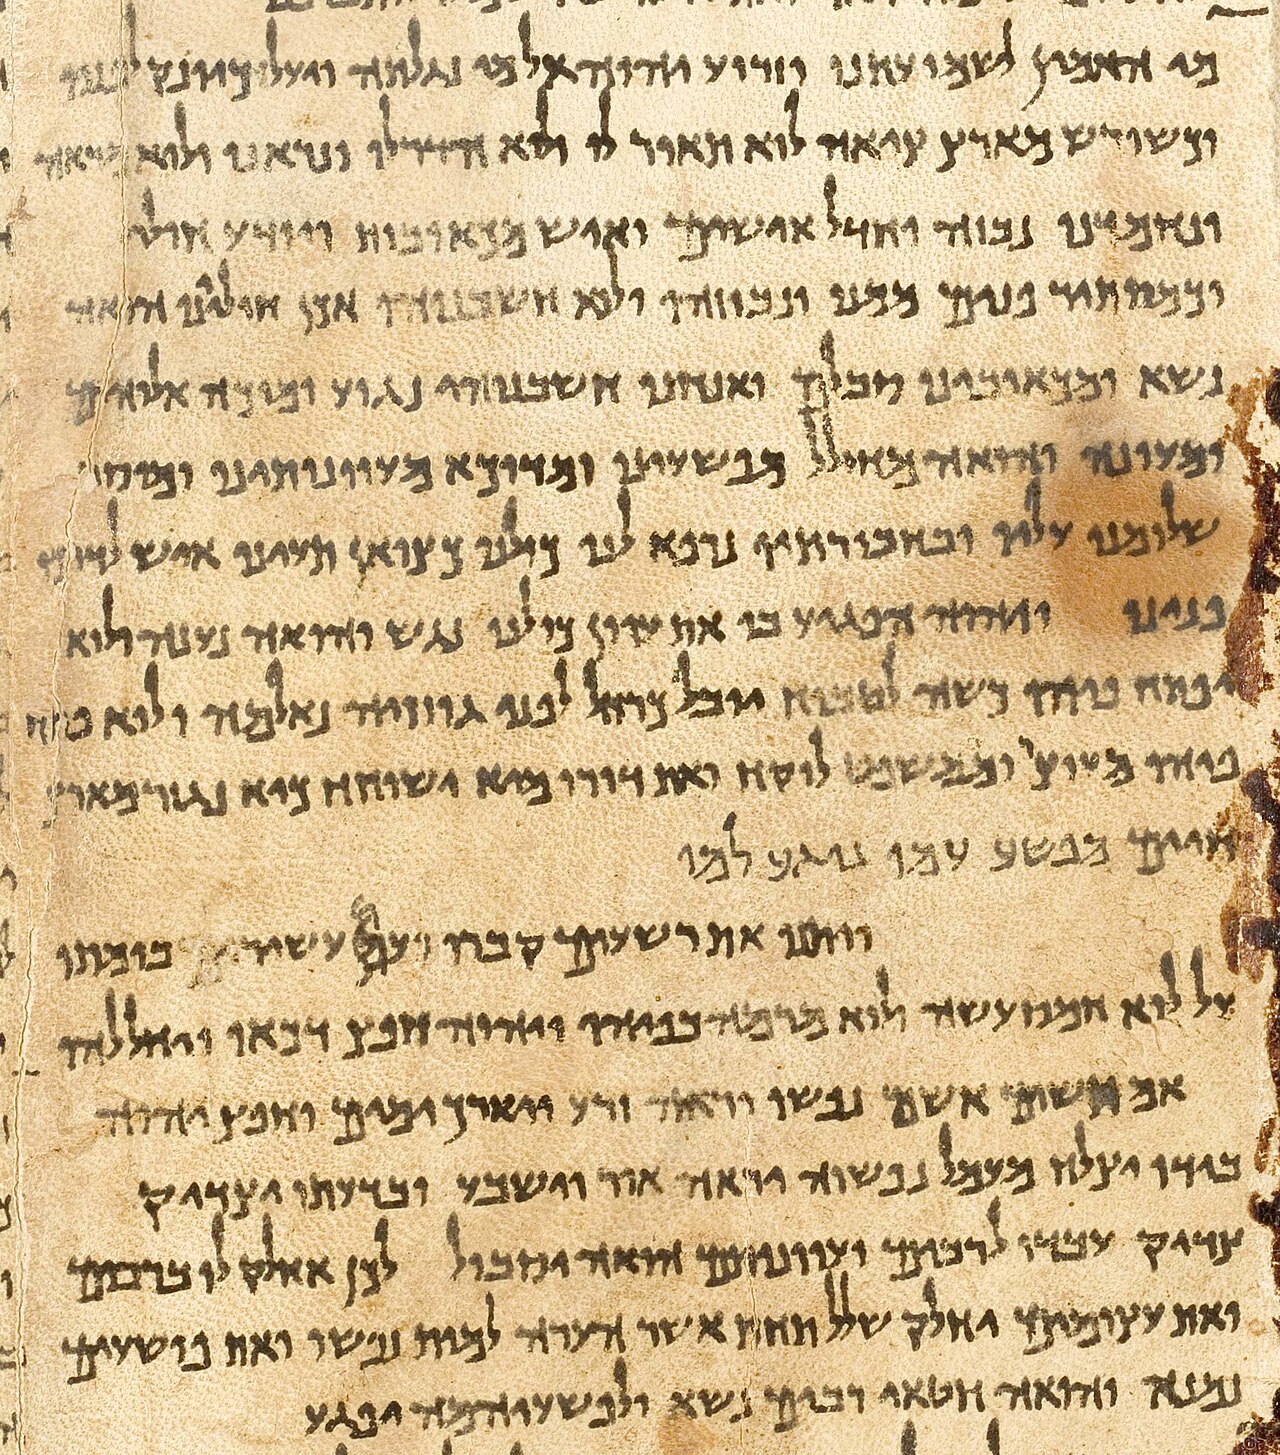 מי האמין לשמועתנו וזרוע יהוה אל מי נגלתה ויעל כיונק לפניו
וכשורש מארץ ציאה לוא תאור לו ולוא הדר לו ונראנו ולוא מראה
ונחמדנו נבזה וחדל אישים ואיש מכאובות ויודע חולי
וכמסתר פנים ממנו ונבוזהו ולוא חשבנוהו אכן חוליינו הואה
נשא ומכאובינו סבלם ואנחנו חשבנוהו נגוע ומוכה אלוהים
ומעונה והואה מחולל מפשעינו ומדוכא מעוונותינו ומוסר
שלומנו עליו ובחבורתיו נרפא לנו כולנו כצואן תעינו איש לדרכו
פנינו ויהוה הפגיע בו את עוון כולנו נגש והואה נענה ולוא
יפתח פיהו כשה לטבוח יובל כרחל לפני גוזזיה נאלמה ולוא פתח
פיהו מעוצר וממשפט לוקח ואת דורו מיא ישוחח כיא נגזר מארץ
חיים מפשע עמו נוגע למו
ויתנו את רשעים קברו ועם עשיר בומתו
על לוא חמס עשה ולוא מרמה בפיהו ויהוה חפץ דכאו ויחללהו
אם תשים אשם נפשו יראה זרע ויארך ימים וחפץ יהוה
בידו יצלח מעמל נפשוה יראה אור וישבע ובדעתו יצדיק
צדיק עבדו לרבים ועוונותם הואה יסבול לכן אחלק לו ברבים
ואת עצומים יחלק שלל תחת אשר הערה למות נפשו ואת פושעים
נמנה והואה חטאי רבים נשא ולפשעיהמה יפגע